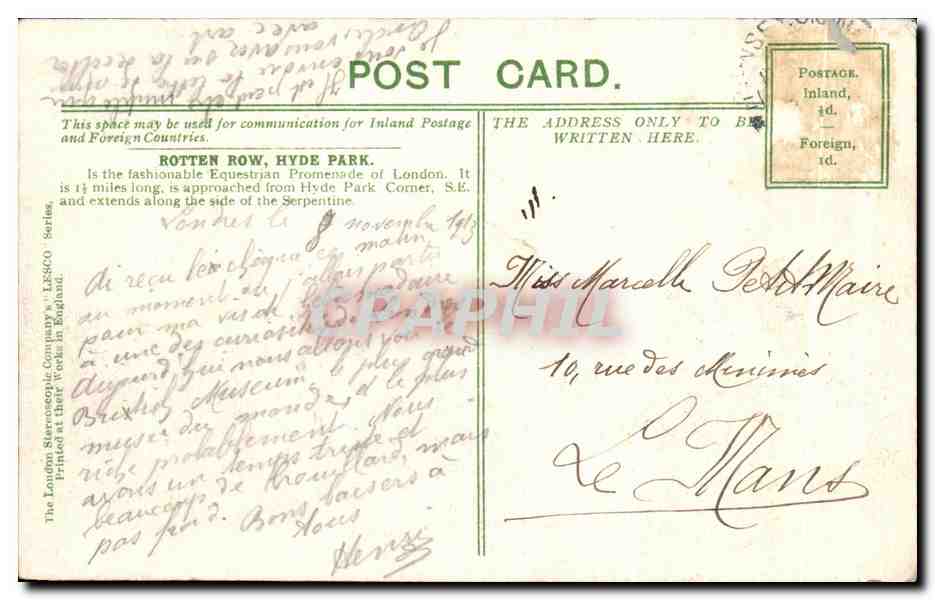 POST CARD.
This space may be used for communication for Inland Postage
and Foreign Countries.
ROTTEN ROW, HYDE PARK.
Is the fashionable Equestrian Promenade of London. It
is 1½ miles long, is approached from Hyde Park Corner, S.E.
and extends along the side of the Serpentine.
Londres le 9 novembre 1913
ai reçu le chèque ce matin
au moment où j'allais partir
pour ma visite hebdomadaire
à une des curiosités
Aujourd'hui nous allons voir le
British Museum le plus grand
musée du monde, et le plus
riche probablement. Nous
avons un temps triste et
beaucoup de brouillard, mais
pas froid. Bons baisers à
tous
Henri
vous avec
avec art
The London Stereoscopic Company's "LESCO" Series,
Printed at their Works in England.
THE ADDRESS ONLY TO BE
WRITTEN HERE.
POSTAGE.
Inland,
½d.
Foreign,
1d.
Miss Marcelle PetitMaire
10, rue des Minimes
Le Mans
CPAPHIL